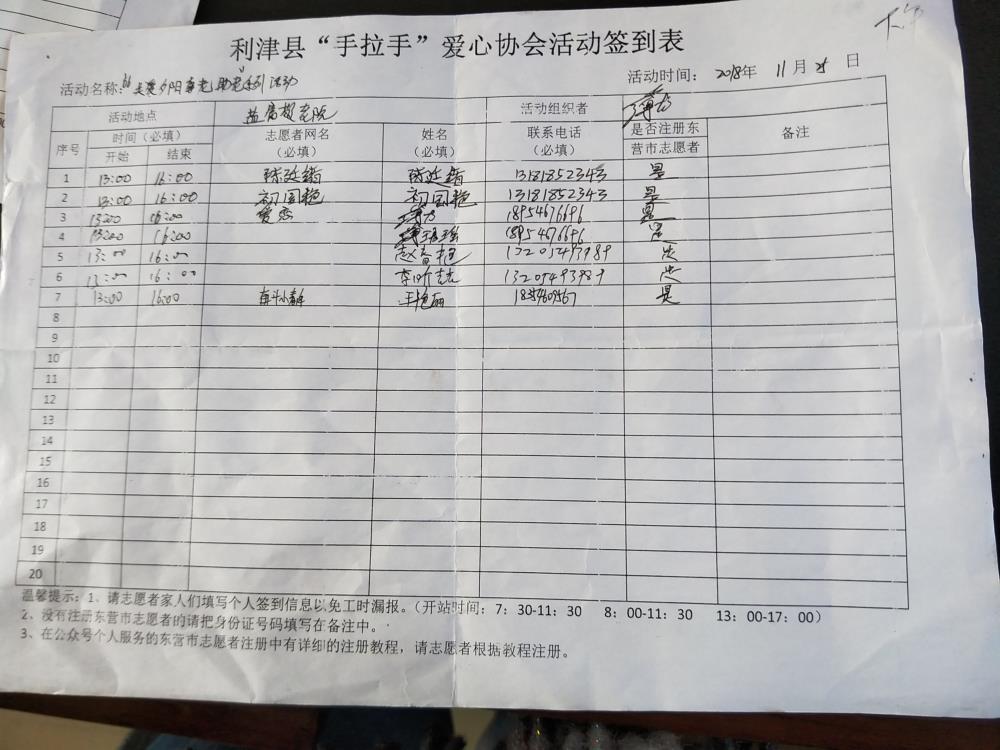 下午
利津县“手拉手”爱心协会活动签到表
活动名称:“ 夕阳 助老系列活动 活动时间： 2018年 11月 25日
活动地点 盐窝敬老院 活动组织者
序号 时间（必填） 志愿者网名（必填） 姓名（必填） 联系电话（必填） 是否注册东营市志愿者 备注
开始 结束
1 13:00 16:00 13181852343 是
2 13:00 16:00 初国艳 初国艳 13181852343 是
3 13:00 16:00 18954676696 是
4 13:00 16:00 18954676696 是
5 13:00 16:00 赵春艳 13205493989 是
6 13:00 16:00 13205493989 是
7 13:00 16:00 奋斗小静 王艳丽 是
8
9
10
11
12
13
14
15
16
17
18
19
20
温馨提示：1、请志愿者家人们填写个人签到信息以免工时漏报。（开站时间：7：30-11：30 8：00-11：30 13：00-17：00）
2、没有注册东营市志愿者的请把身份证号码填写在备注中。
3、在公众号个人服务的东营市志愿者注册中有详细的注册教程，请志愿者根据教程注册。